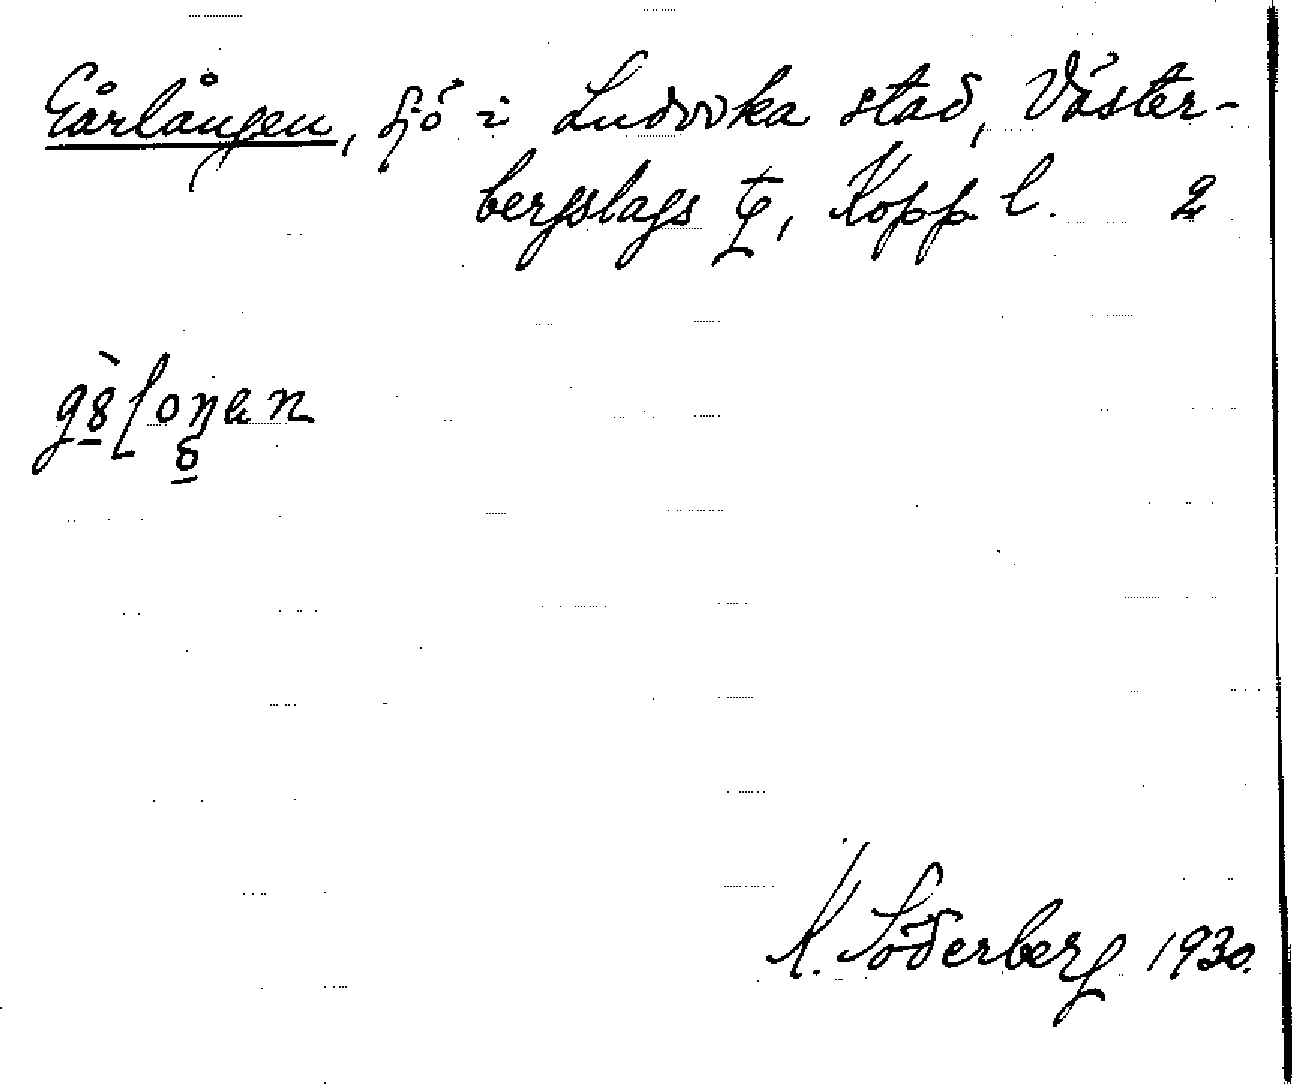 Gårlången, sjö i Ludvika stad, Väster-
bergslags tg, Kopp l. 2
K. Söderberg 1930.